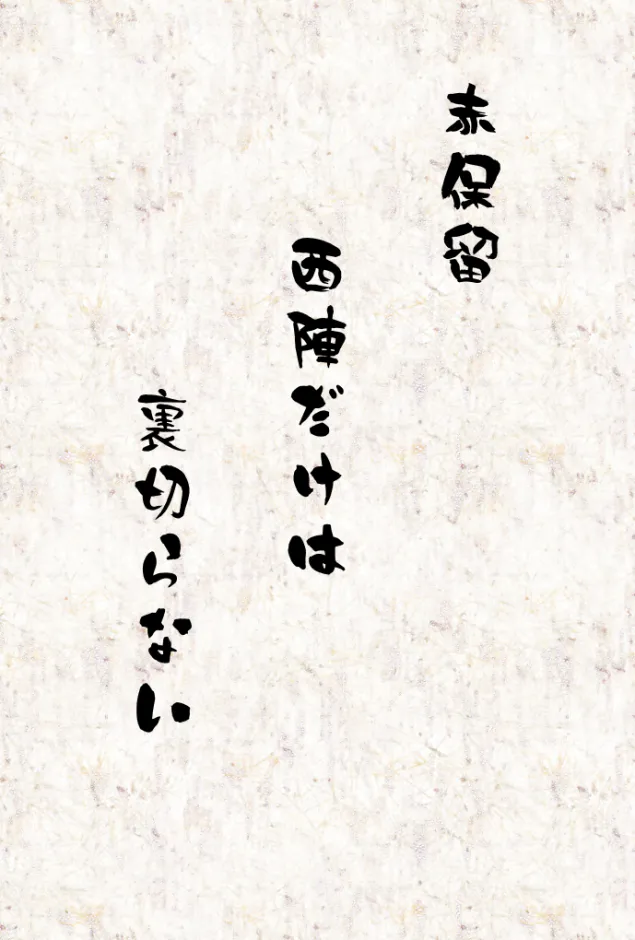 赤保留
西陣だけは
裏切らない